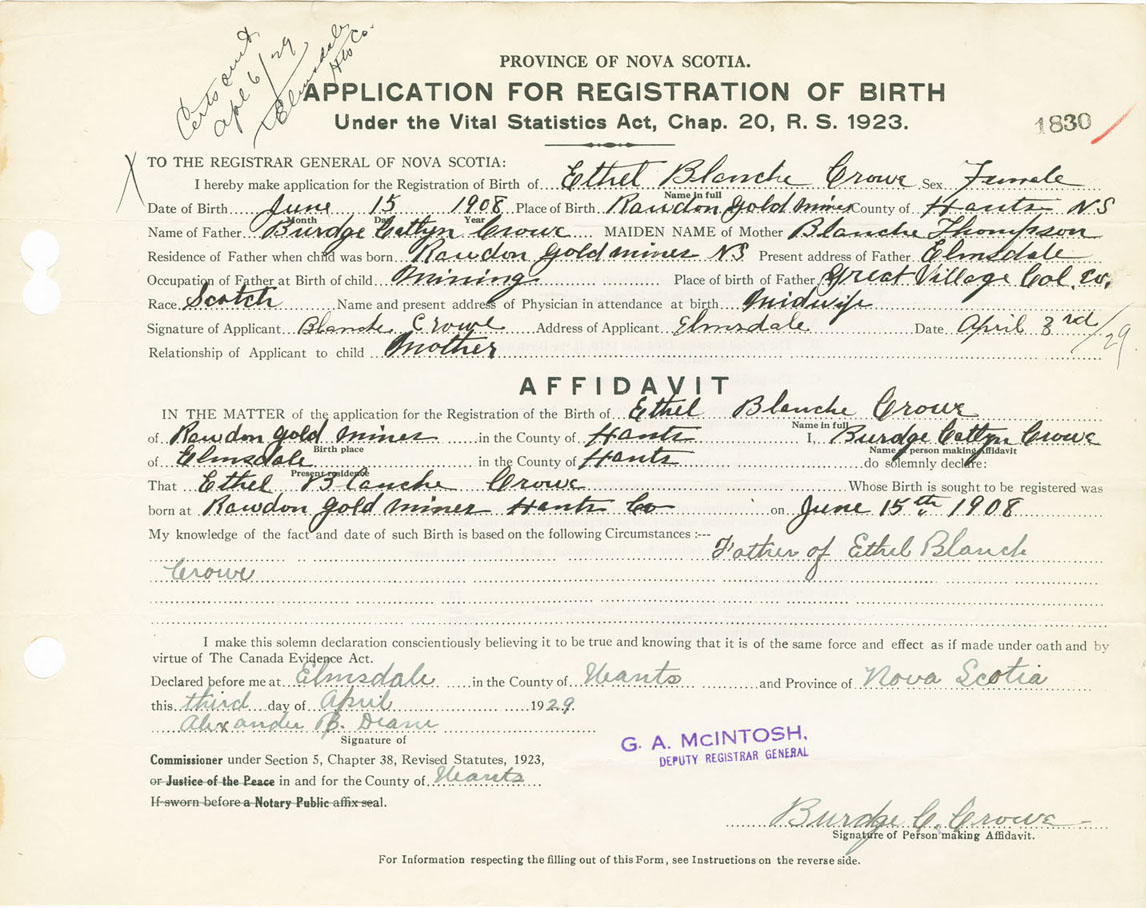 Certs sent
Apl 6/29
Elmsdale
Hts Co.
PROVINCE OF NOVA SCOTIA.
APPLICATION FOR REGISTRATION OF BIRTH
Under the Vital Statistics Act, Chap. 20, R. S. 1923.
1830
X TO THE REGISTRAR GENERAL OF NOVA SCOTIA:
I hereby make application for the Registration of Birth of Ethel Blanche Crowe Sex Female
Name in full
Date of Birth June 15 1908 Place of Birth Rawdon Gold Mines County of Hants NS
Month Day Year
Name of Father Burdge Catlyn Crowe MAIDEN NAME of Mother Blanche Thompson
Residence of Father when child was born Rawdon Gold mines NS Present address of Father Elmsdale
Occupation of Father at Birth of child Mining Place of birth of Father Great Village Col. Co.
Race Scotch Name and present address of Physician in attendance at birth midwife
Signature of Applicant Blanche Crowe Address of Applicant Elmsdale Date April 3rd/29
Relationship of Applicant to child Mother
AFFIDAVIT
IN THE MATTER of the application for the Registration of the Birth of Ethel Blanche Crowe
Name in full
of Rawdon Gold Mines in the County of Hants I, Burdge Catlyn Crowe
Birth place Name of person making Affidavit
of Elmsdale in the County of Hants do solemnly declare:
Present residence
That Ethel Blanche Crowe Whose Birth is sought to be registered was
born at Rawdon Gold Mines Hants Co on June 15th 1908
My knowledge of the fact and date of such Birth is based on the following Circumstances :--- Father of Ethel Blanch
Crowe
I make this solemn declaration conscientiously believing it to be true and knowing that it is of the same force and effect as if made under oath and by
virtue of The Canada Evidence Act.
Declared before me at Elmsdale in the County of Hants and Province of Nova Scotia
this third day of April 1929
Alexander B. Deane
Signature of
Commissioner under Section 5, Chapter 38, Revised Statutes, 1923,
or Justice of the Peace in and for the County of Hants
If sworn before a Notary Public affix seal.
G. A. McINTOSH,
DEPUTY REGISTRAR GENERAL
Burdge C. Crowe
Signature of Person making Affidavit.
For Information respecting the filling out of this Form, see Instructions on the reverse side.